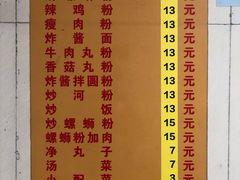 辣鸡粉 13元
瘦肉粉 13元
炸酱面 13元
牛肉丸粉 13元
香菇丸粉 13元
炸酱拌圆粉 13元
炒河粉 13元
炒饭 13元
炒螺蛳粉 15元
螺蛳粉加肉 15元
净丸子 7元
汤菜 7元
小配菜 3元